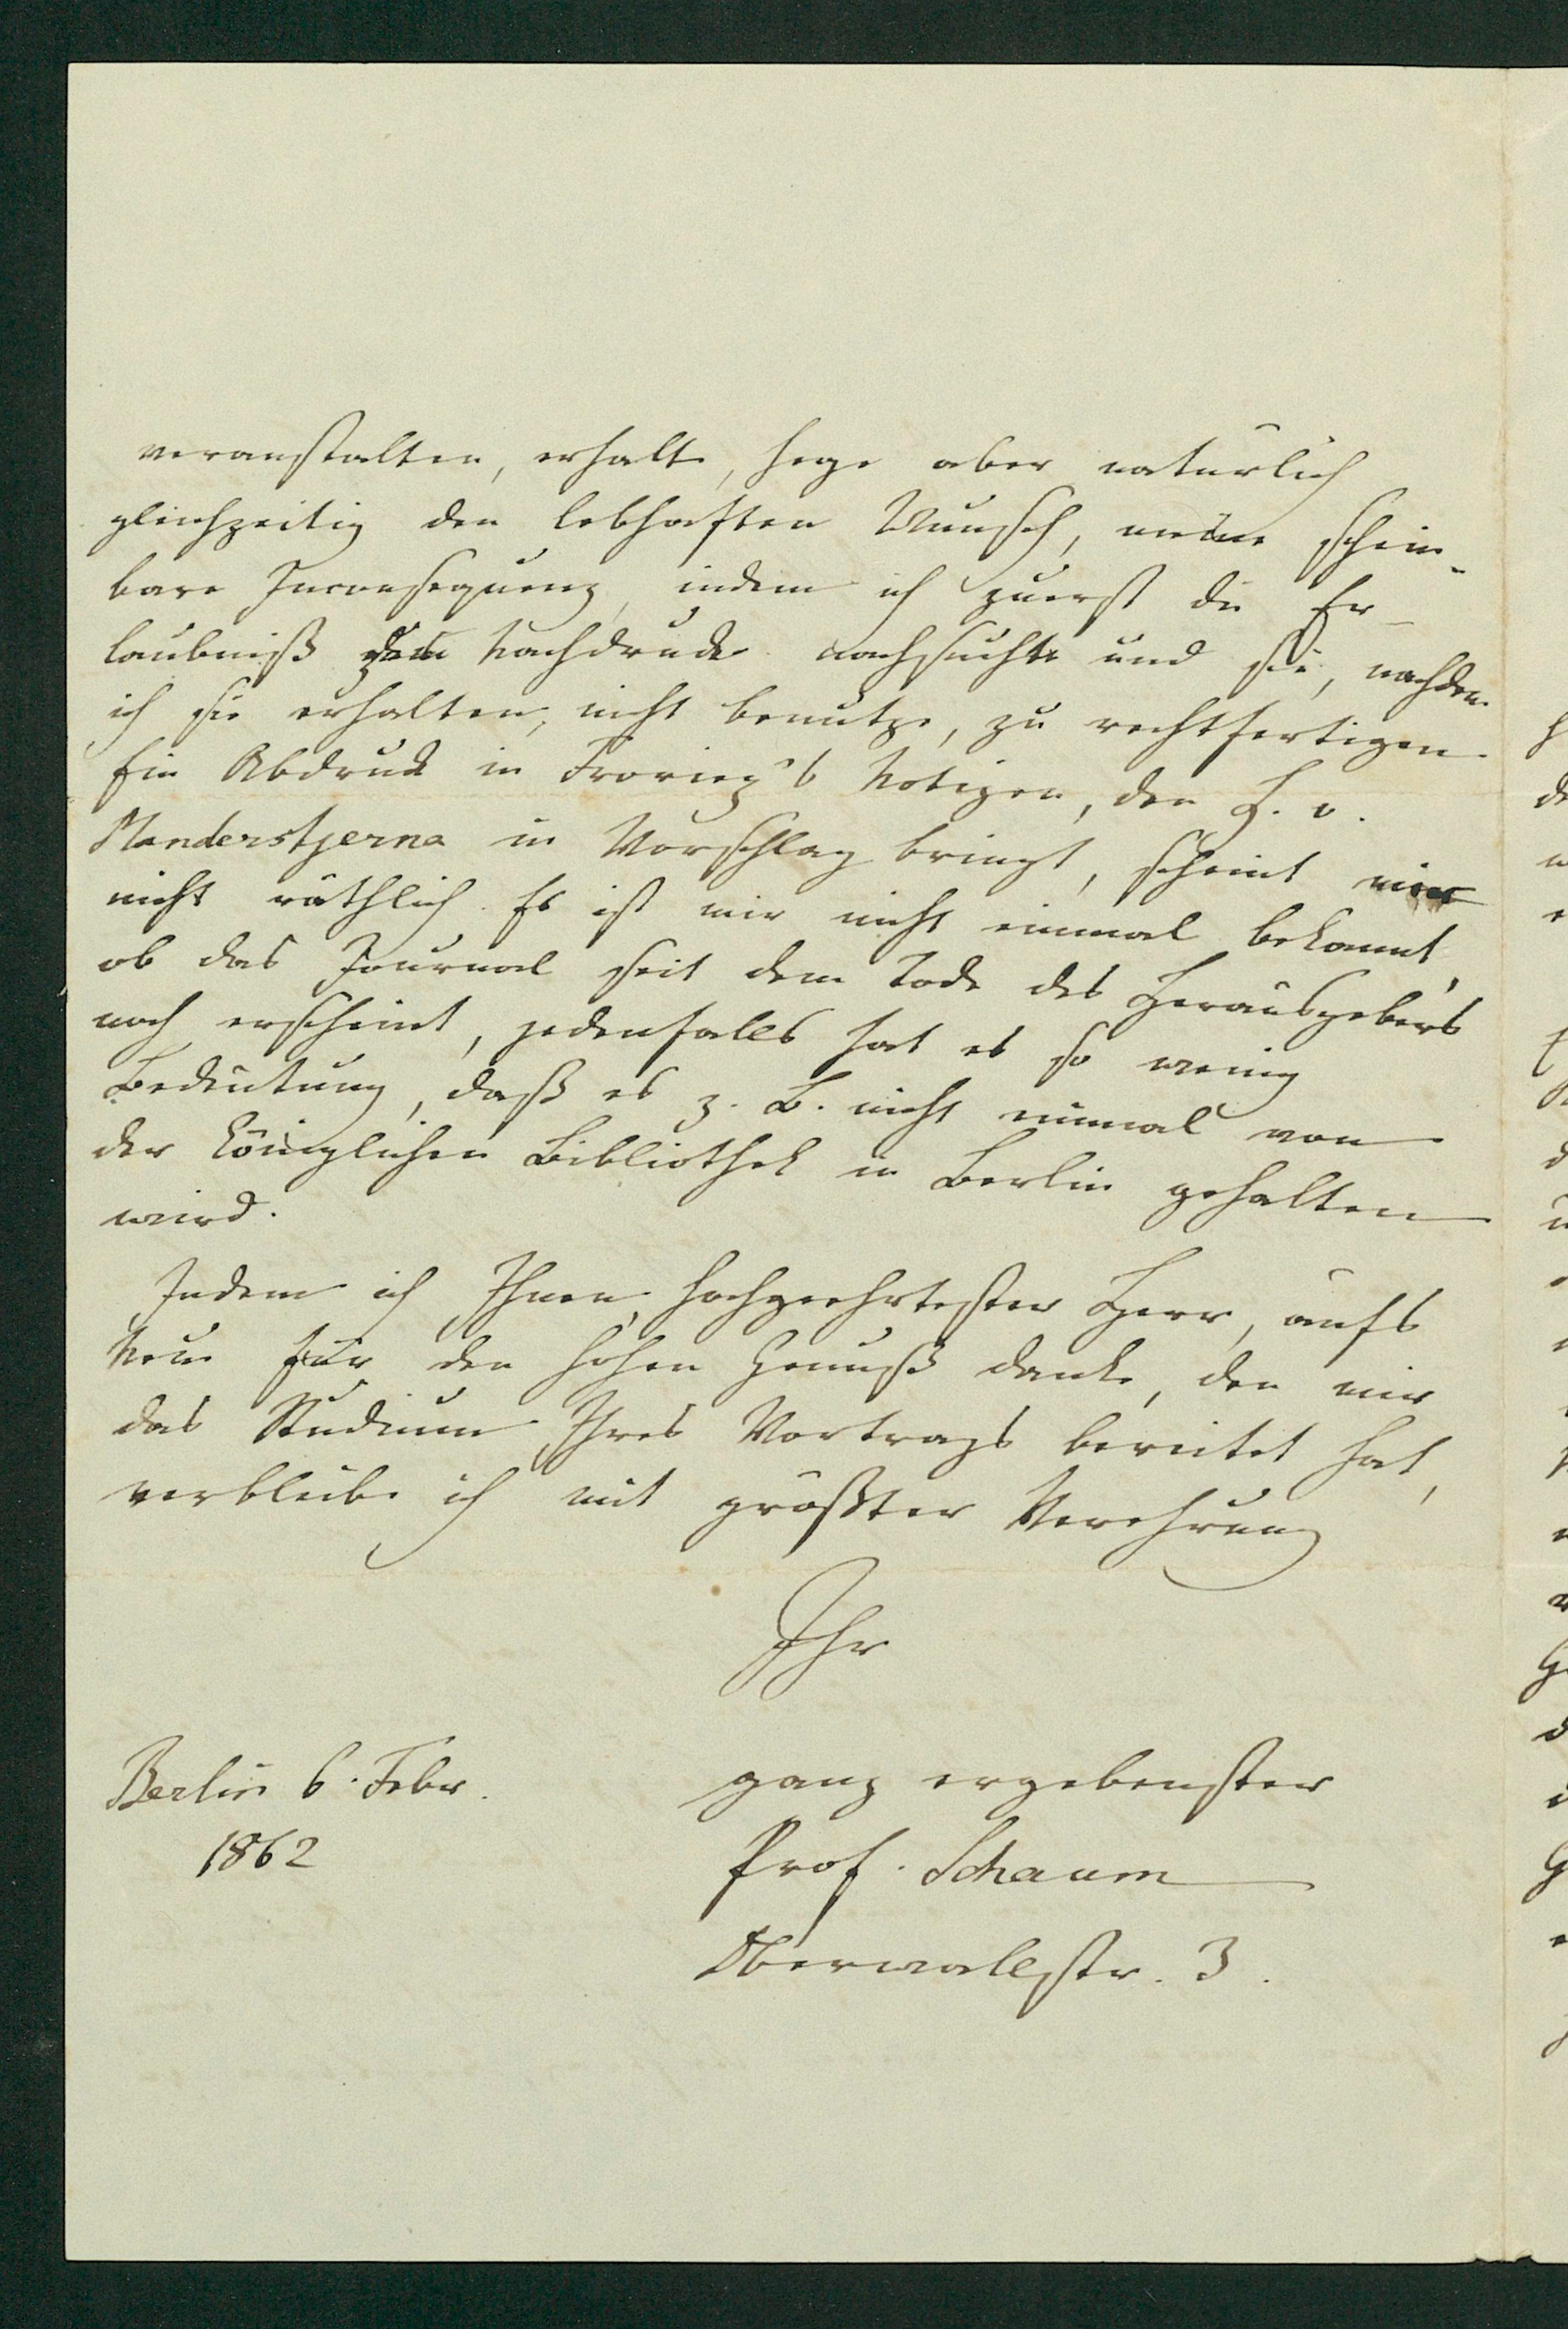 veranstalten, erhalte, hege aber natürlich
gleichzeitig den lebhaften Wunsch, meine schein-
bare Inconsequenz, indem ich zuerst die Er-
laubniß zum Nachdruck nachsuchte und sie, nachdem
ich sie erhalten, nicht benutze, zu rechtfertigen.
Ein Abdruck in Froriep's Notizen, den H. v.
Manderstjerna in Vorschlag bringt, scheint mir
nicht räthlich. Es ist mir nicht einmal bekannt,
ob das Journal seit dem Tode des Herausgebers
noch erscheint, jedenfalls hat es so wenig
Bedeutung, daß es z. B. nicht einmal von
der königlichen Bibliothek in Berlin gehalten
wird.
Indem ich Ihnen, hochgeehrtester Herr, aufs
Neue für den hohen Genuß danke, den mir
das Studium Ihres Vortrags bereitet hat,
verbleibe ich mit größter Verehrung
Ihr
ganz ergebenster
Prof. Schaum
Oberwallstr. 3.
Berlin 6. Febr.
1862